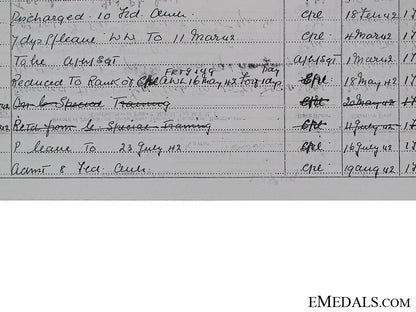 Discharged 10 Fd. Amb. Cpl 18 Feb 42 17
7 dys P/leave WW To 11 Mar 42 Cpl 4 Mar 42 17
To be A/L/Sgt A/L/Sgt 1 Mar 42 17
day
Reduced To Rank of Cpl AWL 16 May 42 For 1 dy Cpl 18 May 42 17
On Special Training Cpl 2 May 42
from Special Training Cpl 4 July 42 17
P leave To 23 July 42 Cpl 16 July 42 17
Admt 8 Fd. Amb. Cpl 19 Aug 42 17
EMEDALS.COM